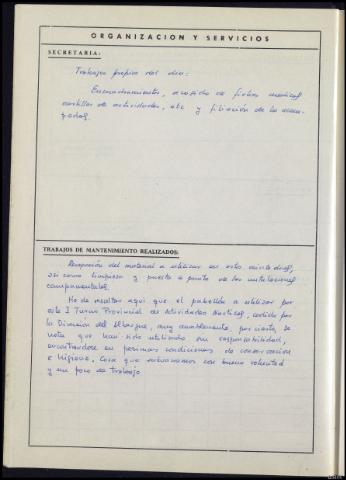 ORGANIZACION Y SERVICIOS
SECRETARIA:
Trabajos propios del dia:
Encuadramientos, de fichas medicas
cartillas de actividades, etc y filiación de los acam-
pados.
TRABAJOS DE MANTENIMIENTO REALIZADOS:
Recepción del material a utilizar en estos dias,
asi como limpieza y puesta a punto de las instalaciones
campamentales.
He de resaltar aqui que el pabellón a utilizar por
este I Turno Provincial de Actividades Nauticas, cedido por
la Direccion del Albergue, muy amablemente, por cierto, se
nota que han sido utilizado sin responsabilidad,
encontrandose en pesimas condiciones de conservacion
e higiene. Cosa que solucionamos con buena voluntad
y un poco de trabajo.